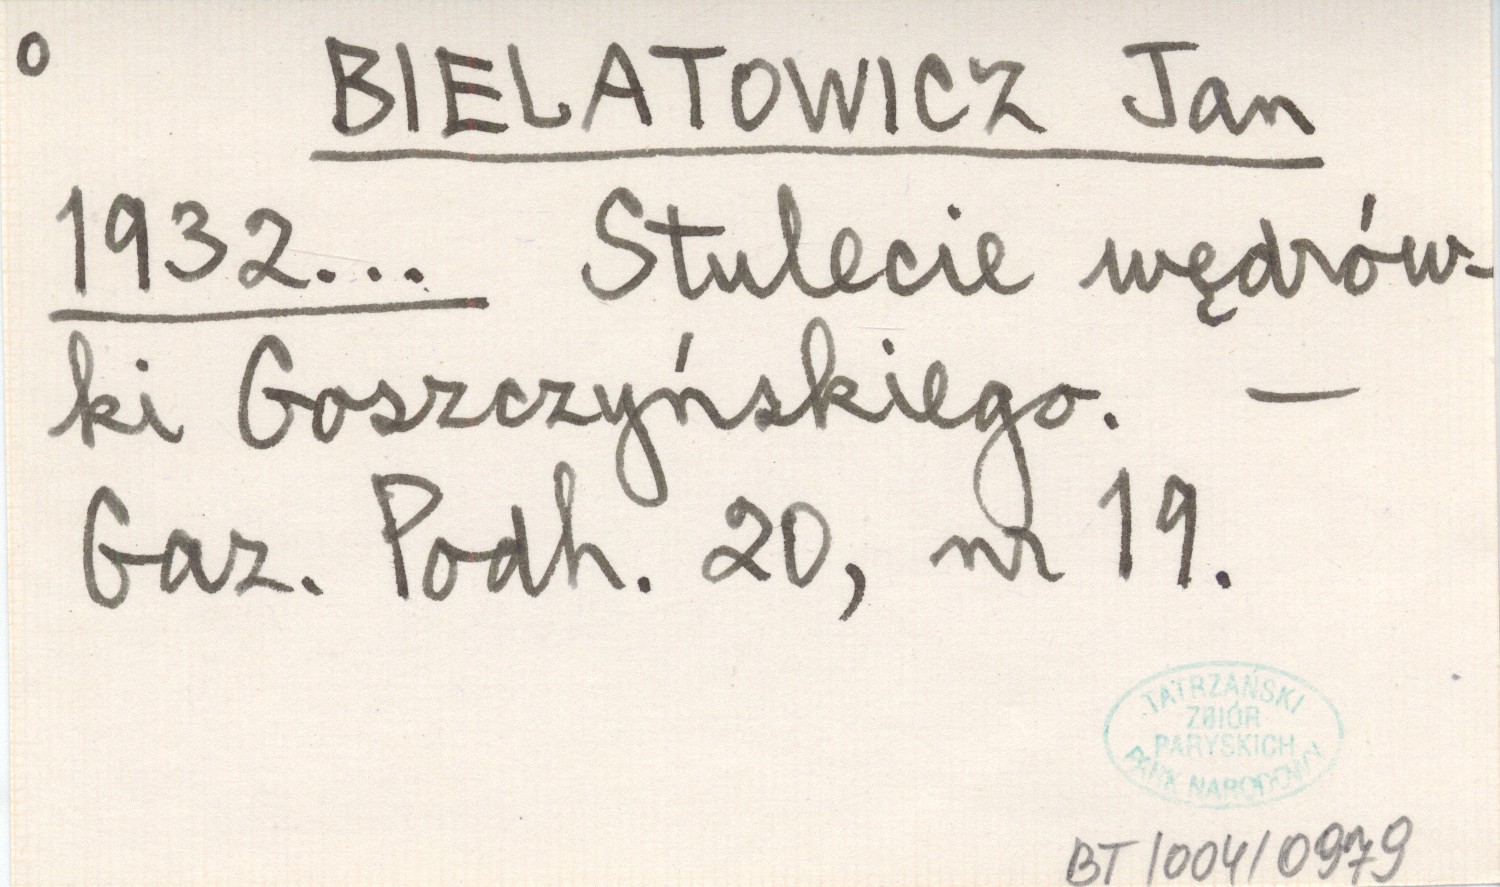 o BIELATOWICZ Jan
1932... Stulecie wędrów-
ki Goszczyńskiego. —
Gaz. Podh. 20, nr 19.
TATRZAŃSKI
ZBIÓR
PARYSKICH
PARK NARODOWY
BT/004/0979